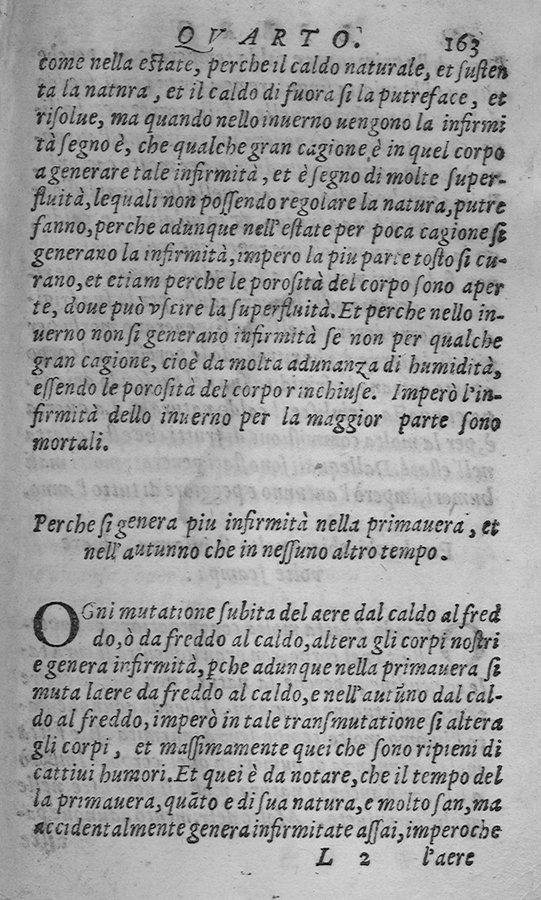 QVARTO. 163
come nella eſtate, perche il caldo naturale, et ſuſten
ta la natnra, et il caldo di fuora ſi la putreface, et
riſolue, ma quando nello inuerno uengono la infirmi
tà ſegno è, che qualche gran cagione è in quel corpo
a generare tale infirmità, et è ſegno di molte ſuper-
fluità, lequali non poſſendo regolare la natura, putre
fanno, perche adunque nell'eſtate per poca cagione ſi
generano la infirmità, impero la piu parte toſto ſi cu-
rano, et etiam perche le poroſità del corpo ſono aper
te, doue può vſcire la ſuperfluità. Et perche nello in-
uerno non ſi generano infirmità ſe non per qualche
gran cagione, cioè da molta adunanza di humidità,
eſſendo le poroſità del corpo rinchiuſe. Imperò l'in-
firmità dello inuerno per la maggior parte ſono
mortali.
Perche ſi genera piu infirmità nella primauera, et
nell'autunno che in neſſuno altro tempo.
OGni mutatione ſubita del aere dal caldo al fred
do, ò da freddo al caldo, altera gli corpi noſtri
e genera infirmità, pche adunque nella primauera ſi
muta laere da freddo al caldo, e nell'autũno dal cal-
do al freddo, imperò in tale tranſmutatione ſi altera
gli corpi, et maſſimamente quei che ſono ripieni di
cattiui humori. Et quei è da notare, che il tempo del
la primauera, quãto e di ſua natura, e molto ſan, ma
accidentalmente genera infirmitate aſſai, imperoche
L 2 l'aere